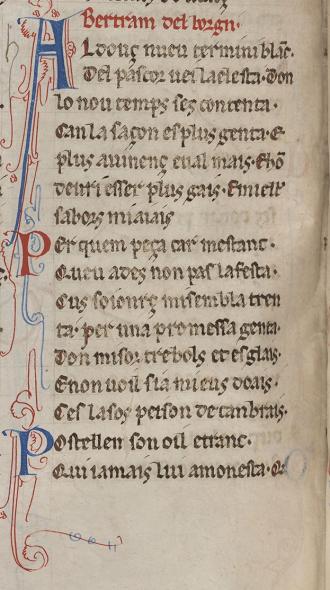 Bertram del borgn·
Al douç nueu termini blāc·
Del pascor uei la elesta· don
lo nou temps ses contenta·
Can la saçon es plus genta· E
plus auinenç e ual mais· E hō
deuri esser plus gais· E miels
sabors mi aiais
Per quem peça car mestanc·
Queu ades non pas la festa·
Cus soiornç mi sembla tren
ta· per una promessa genta·
Don misor trebols et esglais·
E non uoil sia mieus doais·
Ces la sos peison de canbrais·
Postellen son oil et ranc·
Qui iamais lui amonesta·